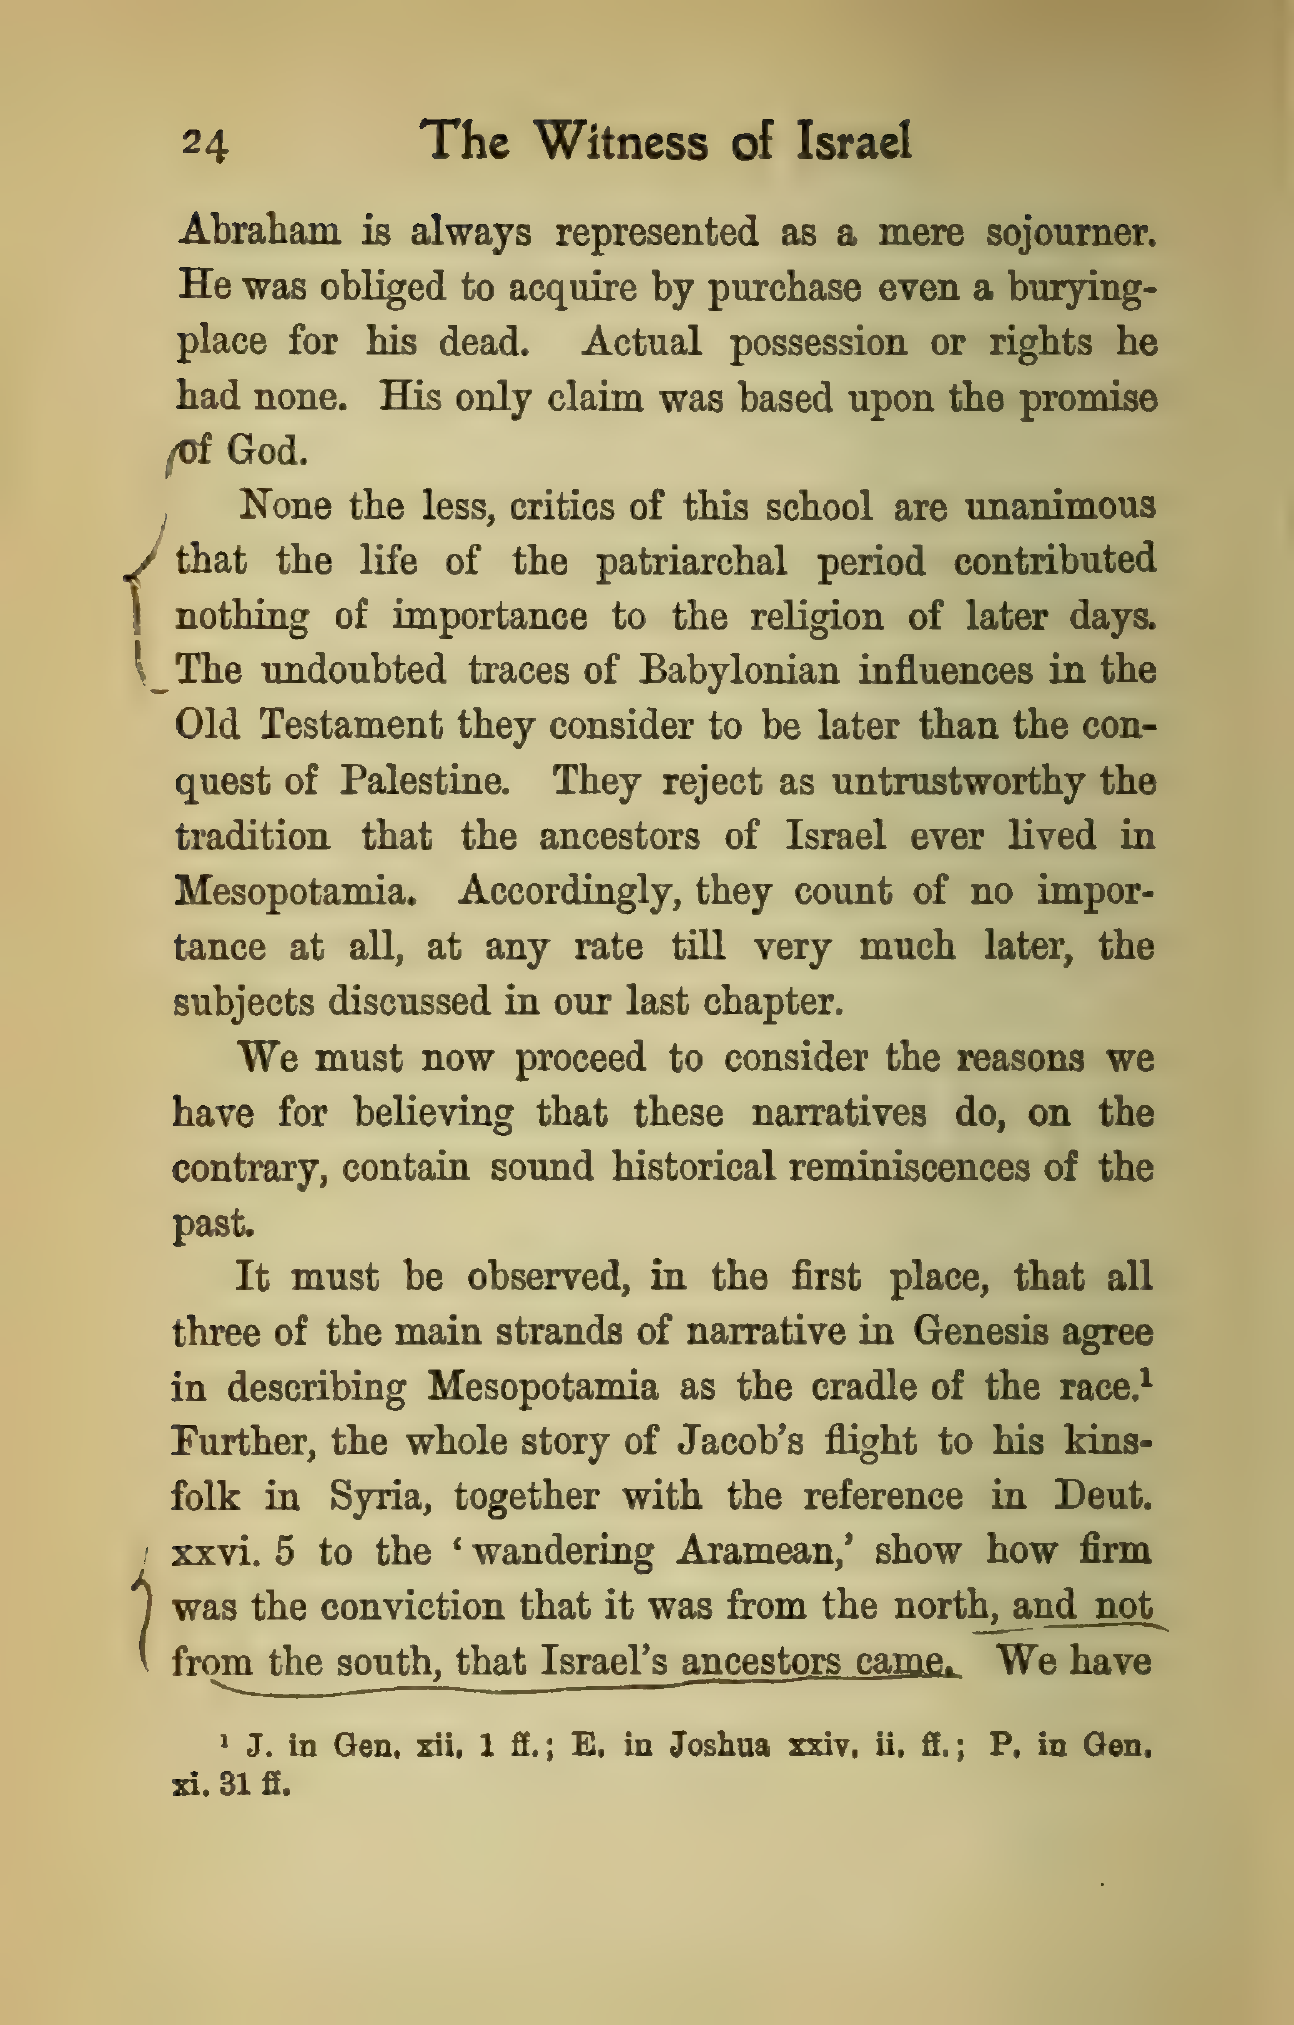 24 The Witness of Israel
Abraham is always represented as a mere sojourner.
He was obliged to acquire by purchase even a burying-
place for his dead. Actual possession or rights he
had none. His only claim was based upon the promise
of God.
None the less, critics of this school are unanimous
that the life of the patriarchal period contributed
nothing of importance to the religion of later days.
The undoubted traces of Babylonian influences in the
Old Testament they consider to be later than the con-
quest of Palestine. They reject as untrustworthy the
tradition that the ancestors of Israel ever lived in
Mesopotamia. Accordingly, they count of no impor-
tance at all, at any rate till very much later, the
subjects discussed in our last chapter.
We must now proceed to consider the reasons we
have for believing that these narratives do, on the
contrary, contain sound historical reminiscences of the
past.
It must be observed, in the first place, that all
three of the main strands of narrative in Genesis agree
in describing Mesopotamia as the cradle of the race.¹
Further, the whole story of Jacob's flight to his kins-
folk in Syria, together with the reference in Deut.
xxvi. 5 to the ‘wandering Aramean,’ show how firm
was the conviction that it was from the north, and not
from the south, that Israel's ancestors came. We have
¹ J. in Gen. xii. 1 ff.; E. in Joshua xxiv. ii. ff.; P. in Gen.
xi. 31 ff.